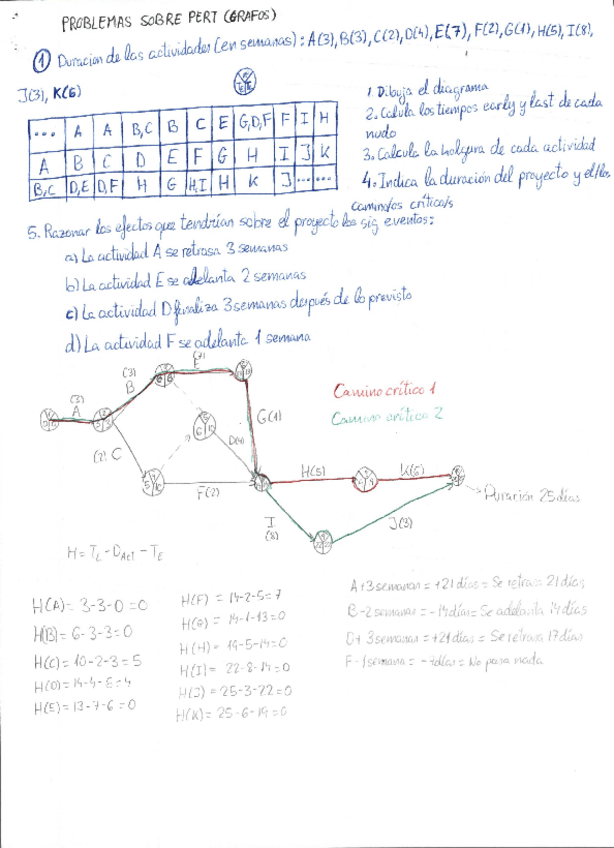 PROBLEMAS SOBRE PERT (GRAFOS)
1 Duración de las actividades (en semanas): A(3), B(3), C(2), D(4), E(7), F(2), G(1), H(5), I(8),
J(3), K(6)
... A A B,C B C E G,D,F F I H
A B C D E F G H I J K
B,C D,E D,F H G H,I H K J ... ...
1. Dibuja el diagrama
2. Calcula los tiempos early y last de cada
nudo
3. Calcula la holgura de cada actividad
4. Indica la duración del proyecto y el/los
camino/os crítico/s
5. Razonar los efectos que tendrían sobre el proyecto los sig eventos:
a) La actividad A se retrasa 3 semanas
b) La actividad E se adelanta 2 semanas
c) La actividad D finaliza 3 semanas después de lo previsto
d) La actividad F se adelanta 1 semana
(3)
A
(3)
B
(7)
E
G(1)
(2) C
D(4)
F(2)
H(5)
K(6)
I
(8)
J(3)
Camino crítico 1
Camino crítico 2
Duración 25 días
H = TL - DAct - TE
H(A) = 3-3-0 = 0
H(B) = 6-3-3 = 0
H(C) = 10-2-3 = 5
H(D) = 14-4-6 = 4
H(E) = 13-7-6 = 0
H(F) = 14-2-5 = 7
H(G) = 14-1-13 = 0
H(H) = 19-5-14 = 0
H(I) = 22-8-14 = 0
H(J) = 25-3-22 = 0
H(K) = 25-6-19 = 0
A+3 semanas = +21 días = Se retrasa 21 días
B-2 semanas = -14 días = Se adelanta 14 días
D+3 semanas = +21 días = Se retrasa 17 días
F-1 semana = -7 días = No pasa nada